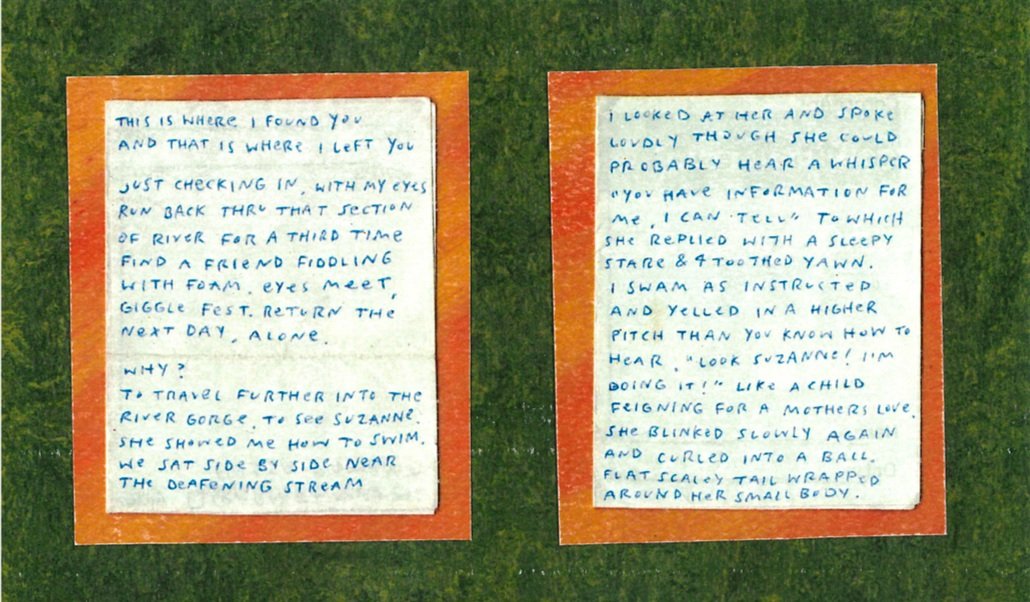 THIS IS WHERE I FOUND YOU
AND THAT IS WHERE I LEFT YOU
JUST CHECKING IN, WITH MY EYES
RUN BACK THRU THAT SECTION
OF RIVER FOR A THIRD TIME
FIND A FRIEND FIDDLING
WITH FOAM. EYES MEET,
GIGGLE FEST. RETURN THE
NEXT DAY, ALONE.
WHY?
TO TRAVEL FURTHER INTO THE
RIVER GORGE. TO SEE SUZANNE.
SHE SHOWED ME HOW TO SWIM.
WE SAT SIDE BY SIDE NEAR
THE DEAFENING STREAM
I LOOKED AT HER AND SPOKE
LOUDLY THOUGH SHE COULD
PROBABLY HEAR A WHISPER
"YOU HAVE INFORMATION FOR
ME, I CAN TELL" TO WHICH
SHE REPLIED WITH A SLEEPY
STARE & 4 TOOTHED YAWN.
I SWAM AS INSTRUCTED
AND YELLED IN A HIGHER
PITCH THAN YOU KNOW HOW TO
HEAR, "LOOK SUZANNE! I'M
DOING IT!" LIKE A CHILD
FEIGNING FOR A MOTHERS LOVE.
SHE BLINKED SLOWLY AGAIN
AND CURLED INTO A BALL.
FLAT SCALEY TAIL WRAPPED
AROUND HER SMALL BODY.